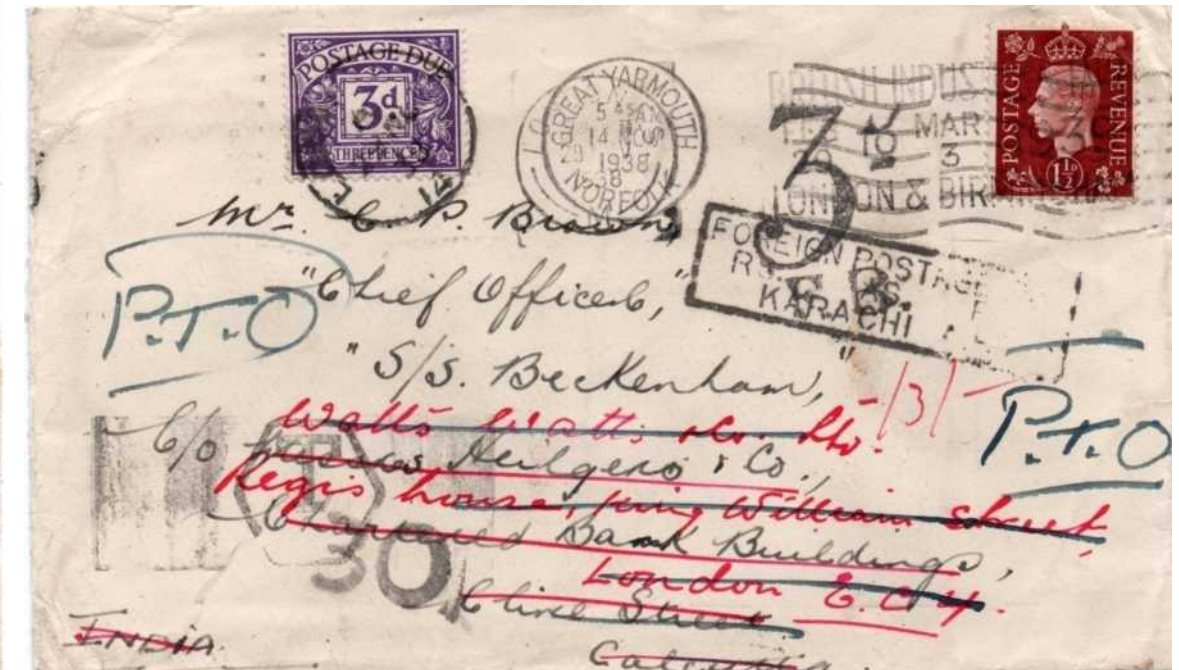 POSTAGE DUE
3d
THREE PENCE
GREAT YARMOUTH
5 AM
14 NOV
1938
NORFOLK
BRITISH INDUSTRIES
MAR
3
LONDON & BIRMINGHAM
POSTAGE
REVENUE
1½D
3d
FOREIGN POSTAGE
KARACHI
Mr. C. P. Brown,
"Chief Officer,"
"S/S. Beckenham,"
P.T.O
-/3/-
P.T.O
Watts Watts & Co. Ltd.
C/o Heilgers & Co.,
Regis house, King William Street,
Chartered Bank Buildings,
London E.C.4.
Clive Street
Calcutta
INDIA
T
30